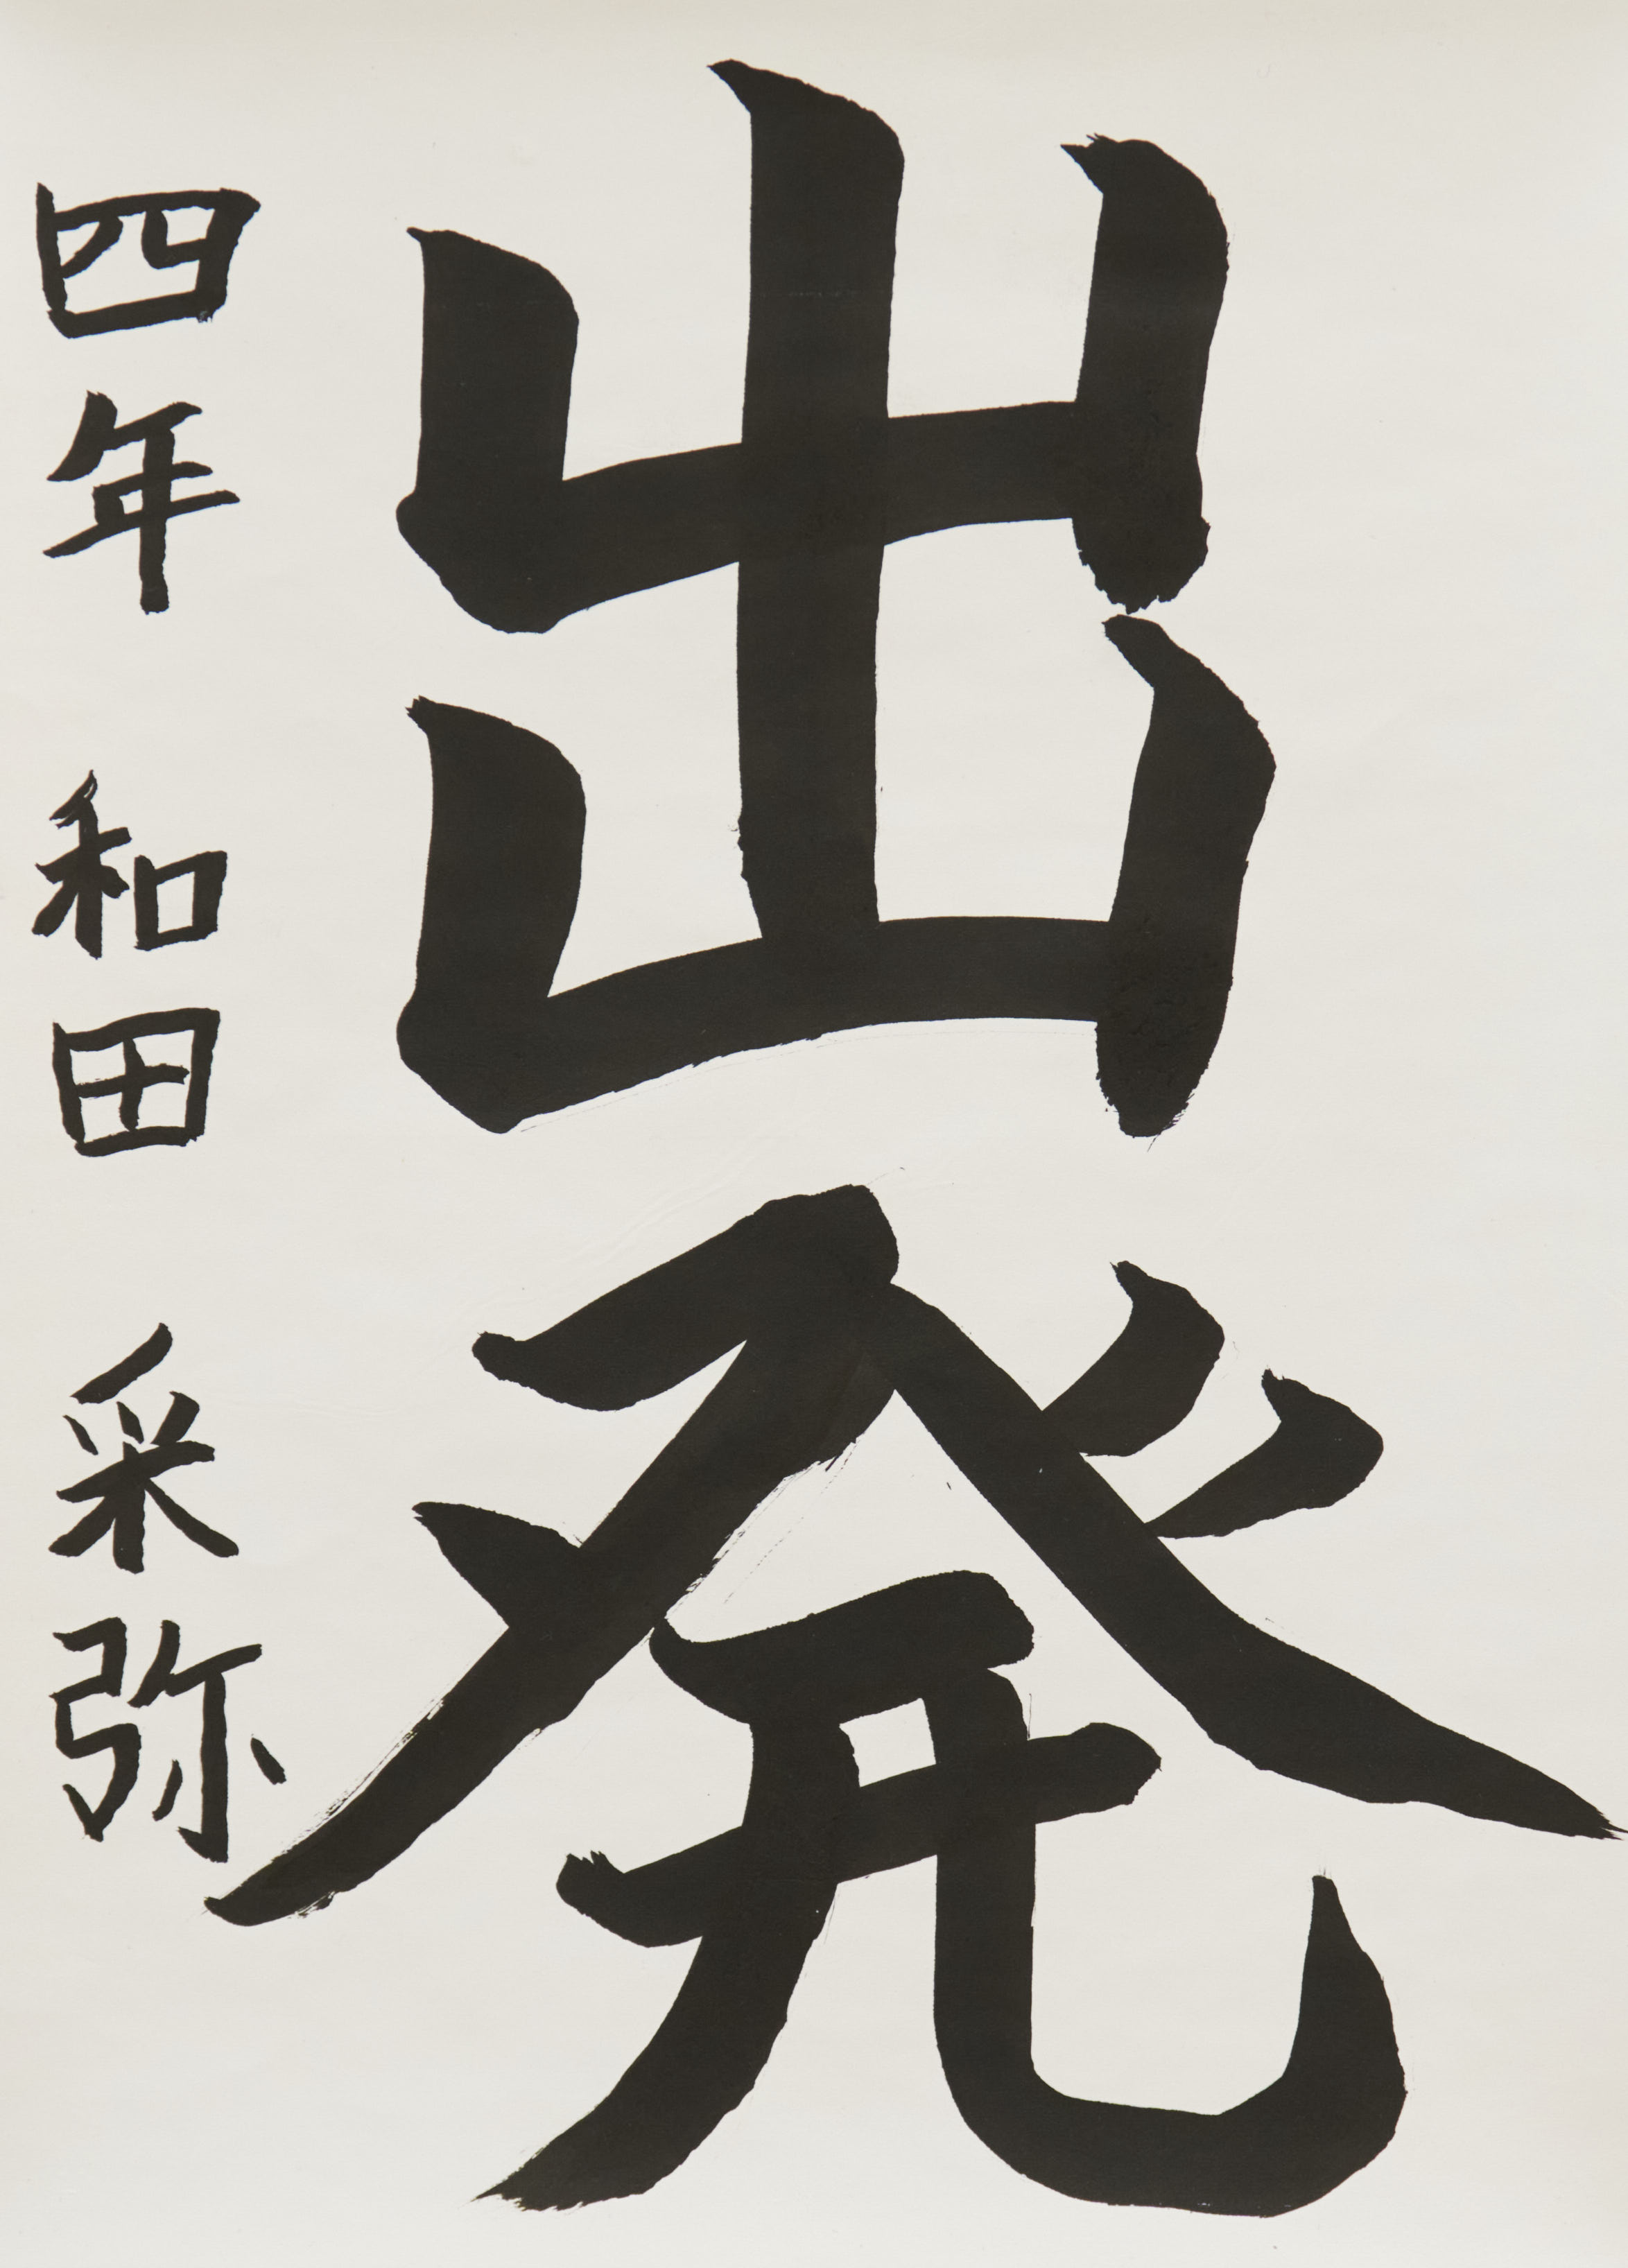 出発
四年 和田 采弥